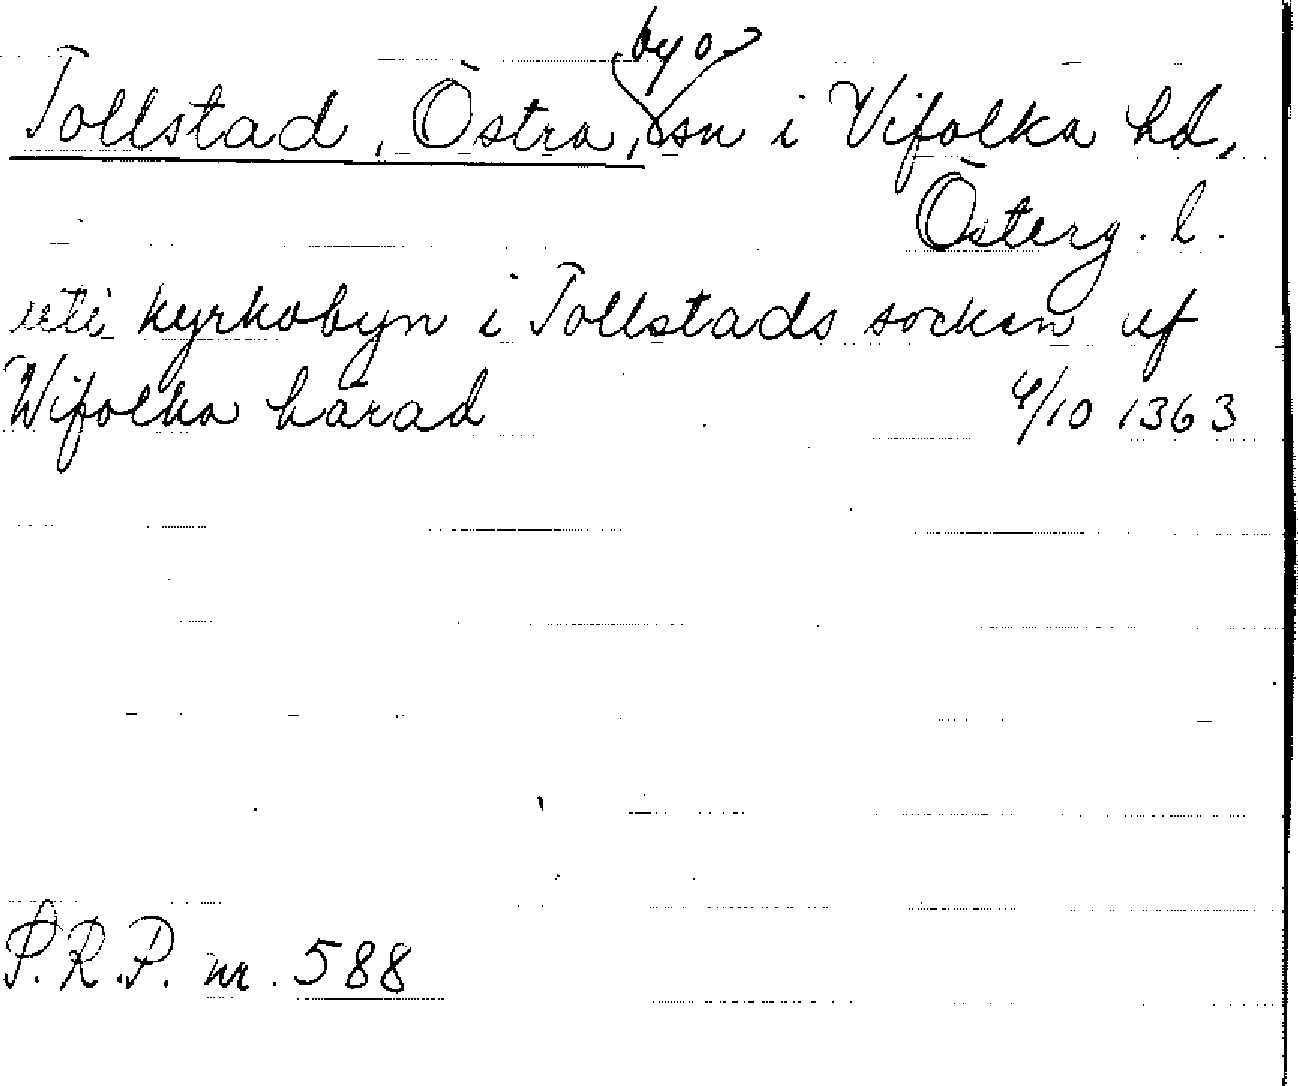 Tollstad, Östra, by o sn i Vifolka hd,
Österg. l.
uti kyrkobyn i Tollstads socken uf
Wifolka härad 4/10 1363
P.R.P. nr. 588